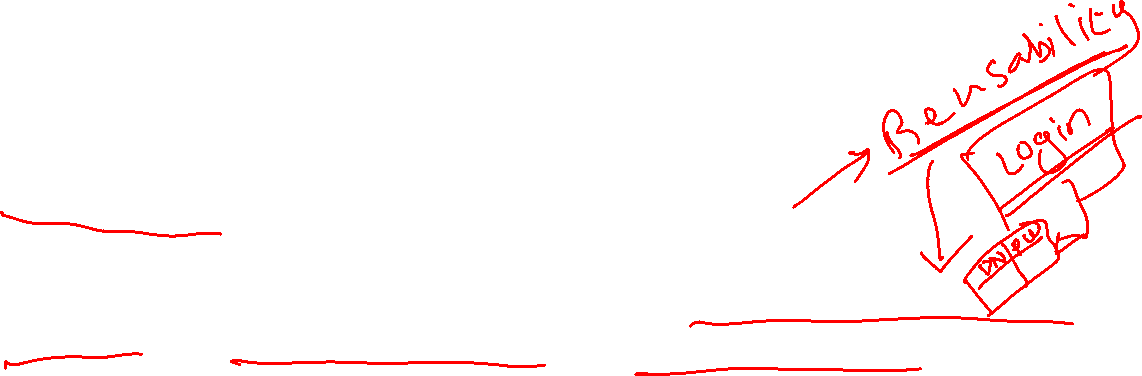 Reusability
Login